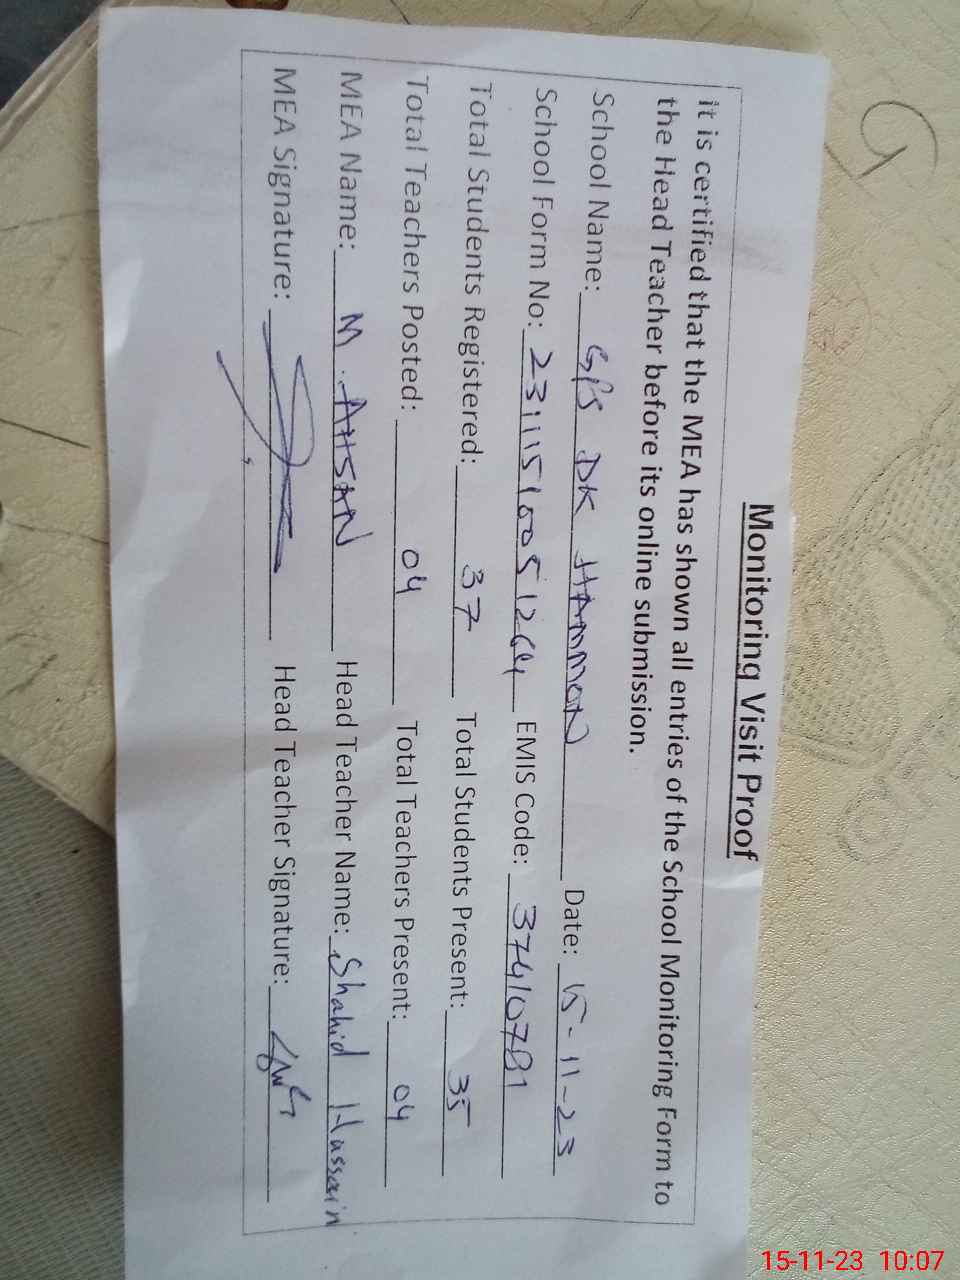 Monitoring Visit Proof
it is certified that the MEA has shown all entries of the School Monitoring Form to
the Head Teacher before its online submission.
School Name: GPS DK HAMMON Date: 15-11-23
School Form No: 23111510051264 EMIS Code: 37410781
Total Students Registered: 37 Total Students Present: 35
Total Teachers Posted: 04 Total Teachers Present: 04
MEA Name: M. AHSAN Head Teacher Name: Shahid Hussain
MEA Signature: Head Teacher Signature:
15-11-23 10:07